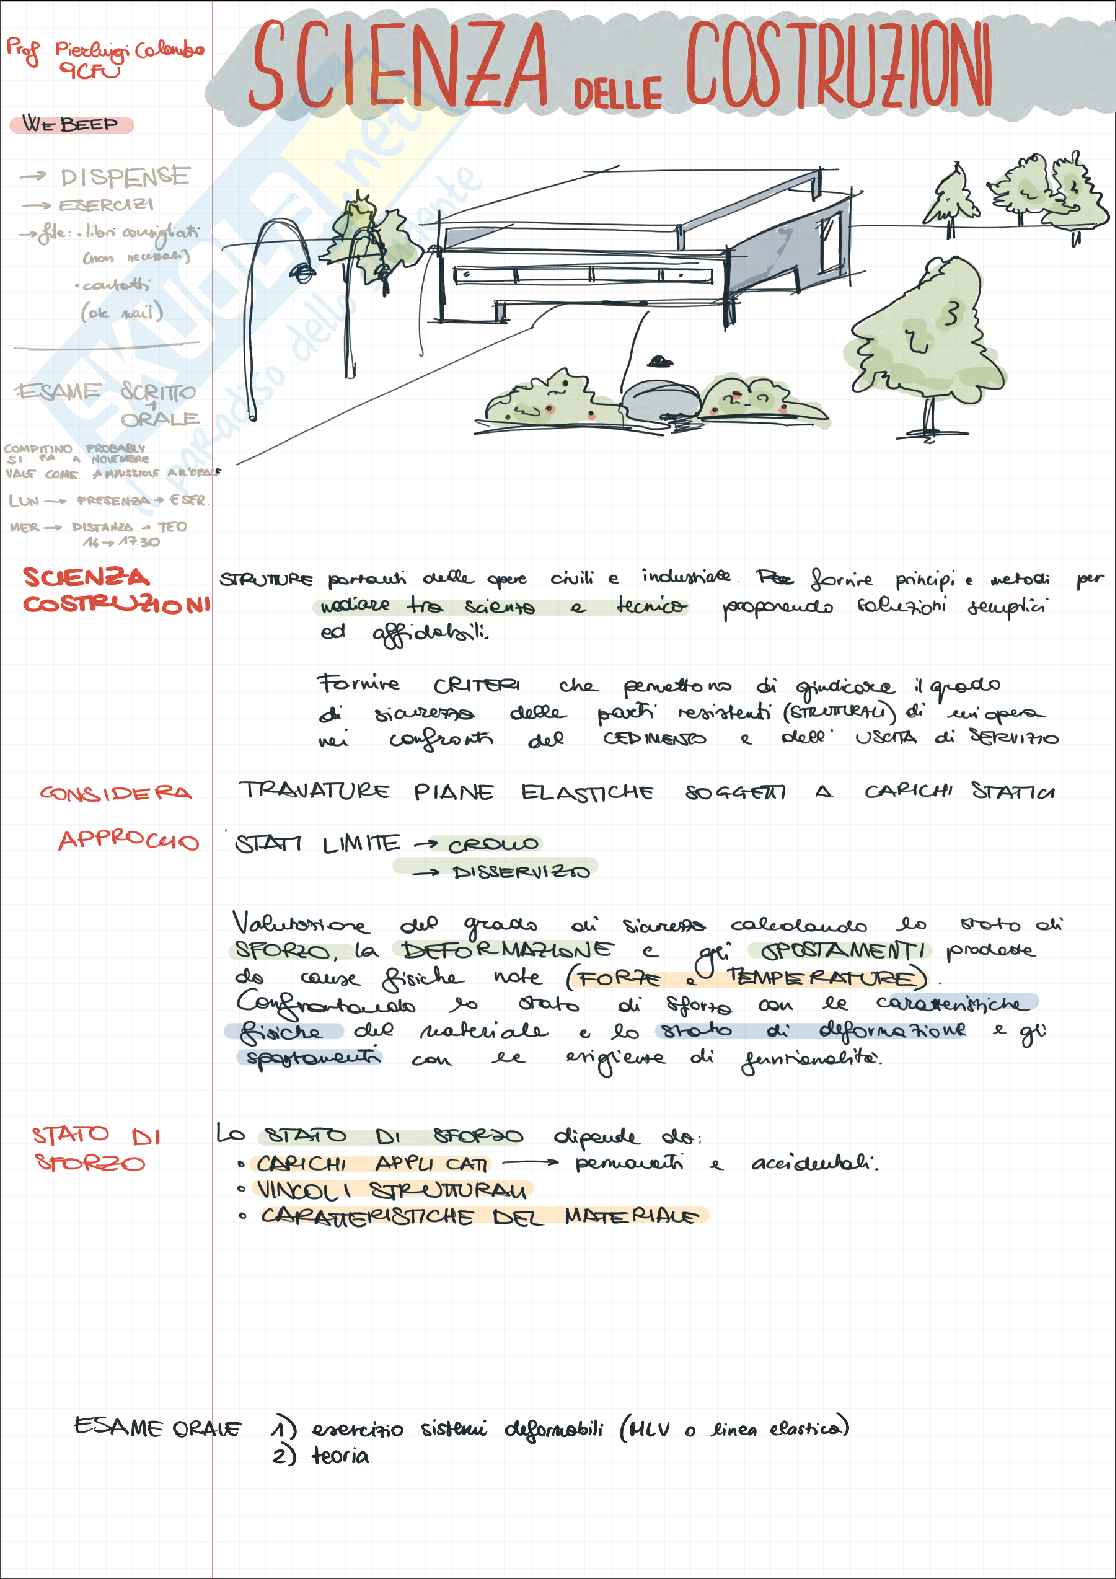 Prof Pierluigi Colombo
9CFU
SCIENZA DELLE COSTRUZIONI
WEBEEP
→ DISPENSE
→ ESERCIZI
→ file: • libri consigliati
(non necessari)
• contatti
(ok mail)
ESAME SCRITTO
+
ORALE
COMPITINO PROBABLY
SI FA A NOVEMBRE
VALE COME AMMISSIONE ALL'ORALE
LUN → PRESENZA → ESER.
MER → DISTANZA → TEO
14 → 17.30
SKUOLA.net
il paradiso dello studente
SCIENZA
COSTRUZIONI
STRUTTURE portanti delle opere civili e industriale. fornire principi e metodi per
mediare tra scienza e tecnica proponendo soluzioni semplici
ed affidabili.
Fornire CRITERI che permettono di giudicare il grado
di sicurezza delle parti resistenti (STRUTTURALI) di un'opera
nei confronti del CEDIMENTO e dell' USCITA di SERVIZIO
CONSIDERA
TRAVATURE PIANE ELASTICHE SOGGETTI A CARICHI STATICI
APPROCCIO
STATI LIMITE → CROLLO
→ DISSERVIZIO
Valutazione del grado di sicurezza calcolando lo stato di
SFORZO, la DEFORMAZIONE e gli SPOSTAMENTI prodotte
da cause fisiche note (FORZE e TEMPERATURE).
Confrontando lo stato di sforzo con le caratteristiche
fisiche del materiale e lo stato di deformazione e gli
spostamenti con le esigenze di funzionalità.
STATO DI
SFORZO
Lo STATO DI SFORZO dipende da:
• CARICHI APPLICATI → permanenti e accidentali.
• VINCOLI STRUTTURALI
• CARATTERISTICHE DEL MATERIALE
ESAME ORALE 1) esercizio sistemi deformabili (MLV o linea elastica)
2) teoria